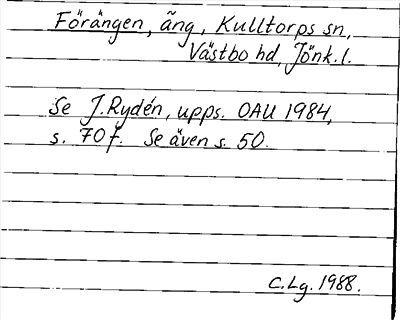 Förängen, äng, Kulltorps sn,
Västbo hd, Jönk.l.
Se J.Rydén, upps. OAU 1984,
s. 70 f. Se även s. 50.
C.Lg. 1988.